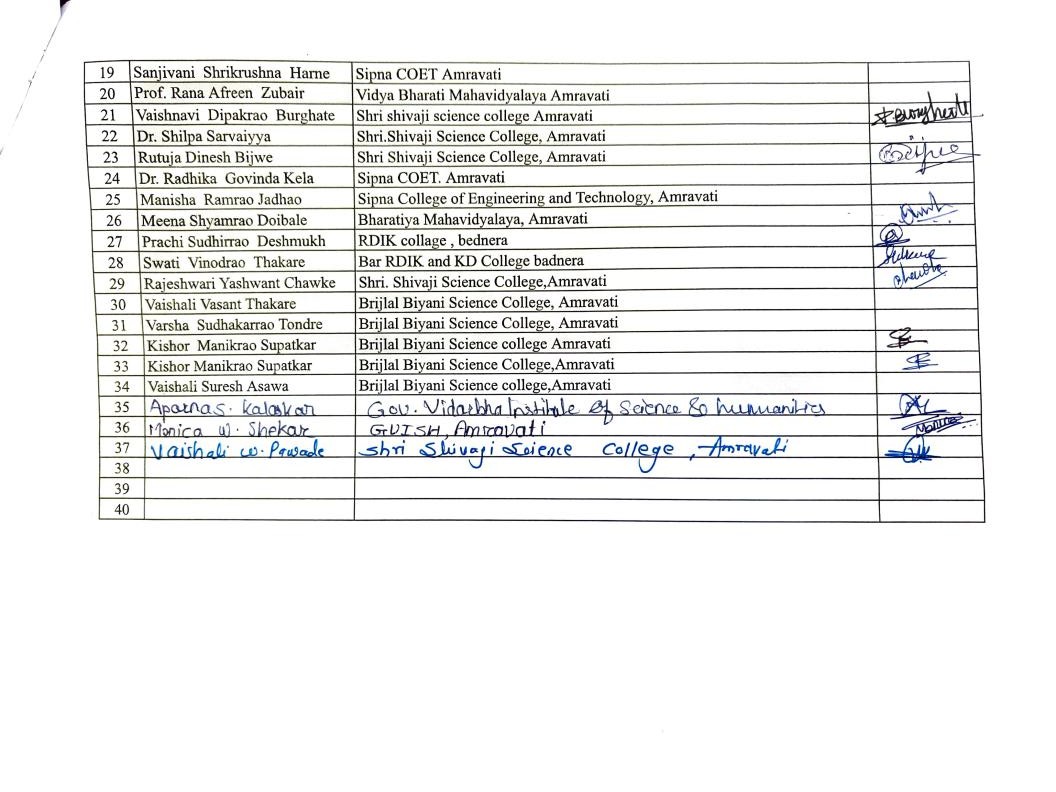 19 Sanjivani Shrikrushna Harne Sipna COET Amravati
20 Prof. Rana Afreen Zubair Vidya Bharati Mahavidyalaya Amravati
21 Vaishnavi Dipakrao Burghate Shri shivaji science college Amravati
22 Dr. Shilpa Sarvaiyya Shri.Shivaji Science College, Amravati
23 Rutuja Dinesh Bijwe Shri Shivaji Science College, Amravati
24 Dr. Radhika Govinda Kela Sipna COET. Amravati
25 Manisha Ramrao Jadhao Sipna College of Engineering and Technology, Amravati
26 Meena Shyamrao Doibale Bharatiya Mahavidyalaya, Amravati
27 Prachi Sudhirrao Deshmukh RDIK collage , bednera
28 Swati Vinodrao Thakare Bar RDIK and KD College badnera
29 Rajeshwari Yashwant Chawke Shri. Shivaji Science College,Amravati
30 Vaishali Vasant Thakare Brijlal Biyani Science College, Amravati
31 Varsha Sudhakarrao Tondre Brijlal Biyani Science College, Amravati
32 Kishor Manikrao Supatkar Brijlal Biyani Science college Amravati
33 Kishor Manikrao Supatkar Brijlal Biyani Science College,Amravati
34 Vaishali Suresh Asawa Brijlal Biyani Science college,Amravati
35 Aparna S. Kalaskar Gov. Vidarbha Institute of Science & humanities
36 Monica W. Shekar GVISH, Amravati
37 Vaishali W. Pawade Shri Shivaji Science College , Amravati
38
39
40